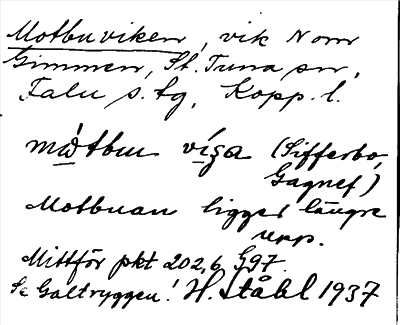 Motbuviken, vik Norr
Gimmen, St. Tuna sn,
Falu s. tg, Kopp. l.
mὼtbuu víʒa (Sifferbo,
Gagnef)
Motbuan ligger längre
upp.
Mittför pkt 202,6 G97.
Se Galtryggen! H. Ståhl 1937